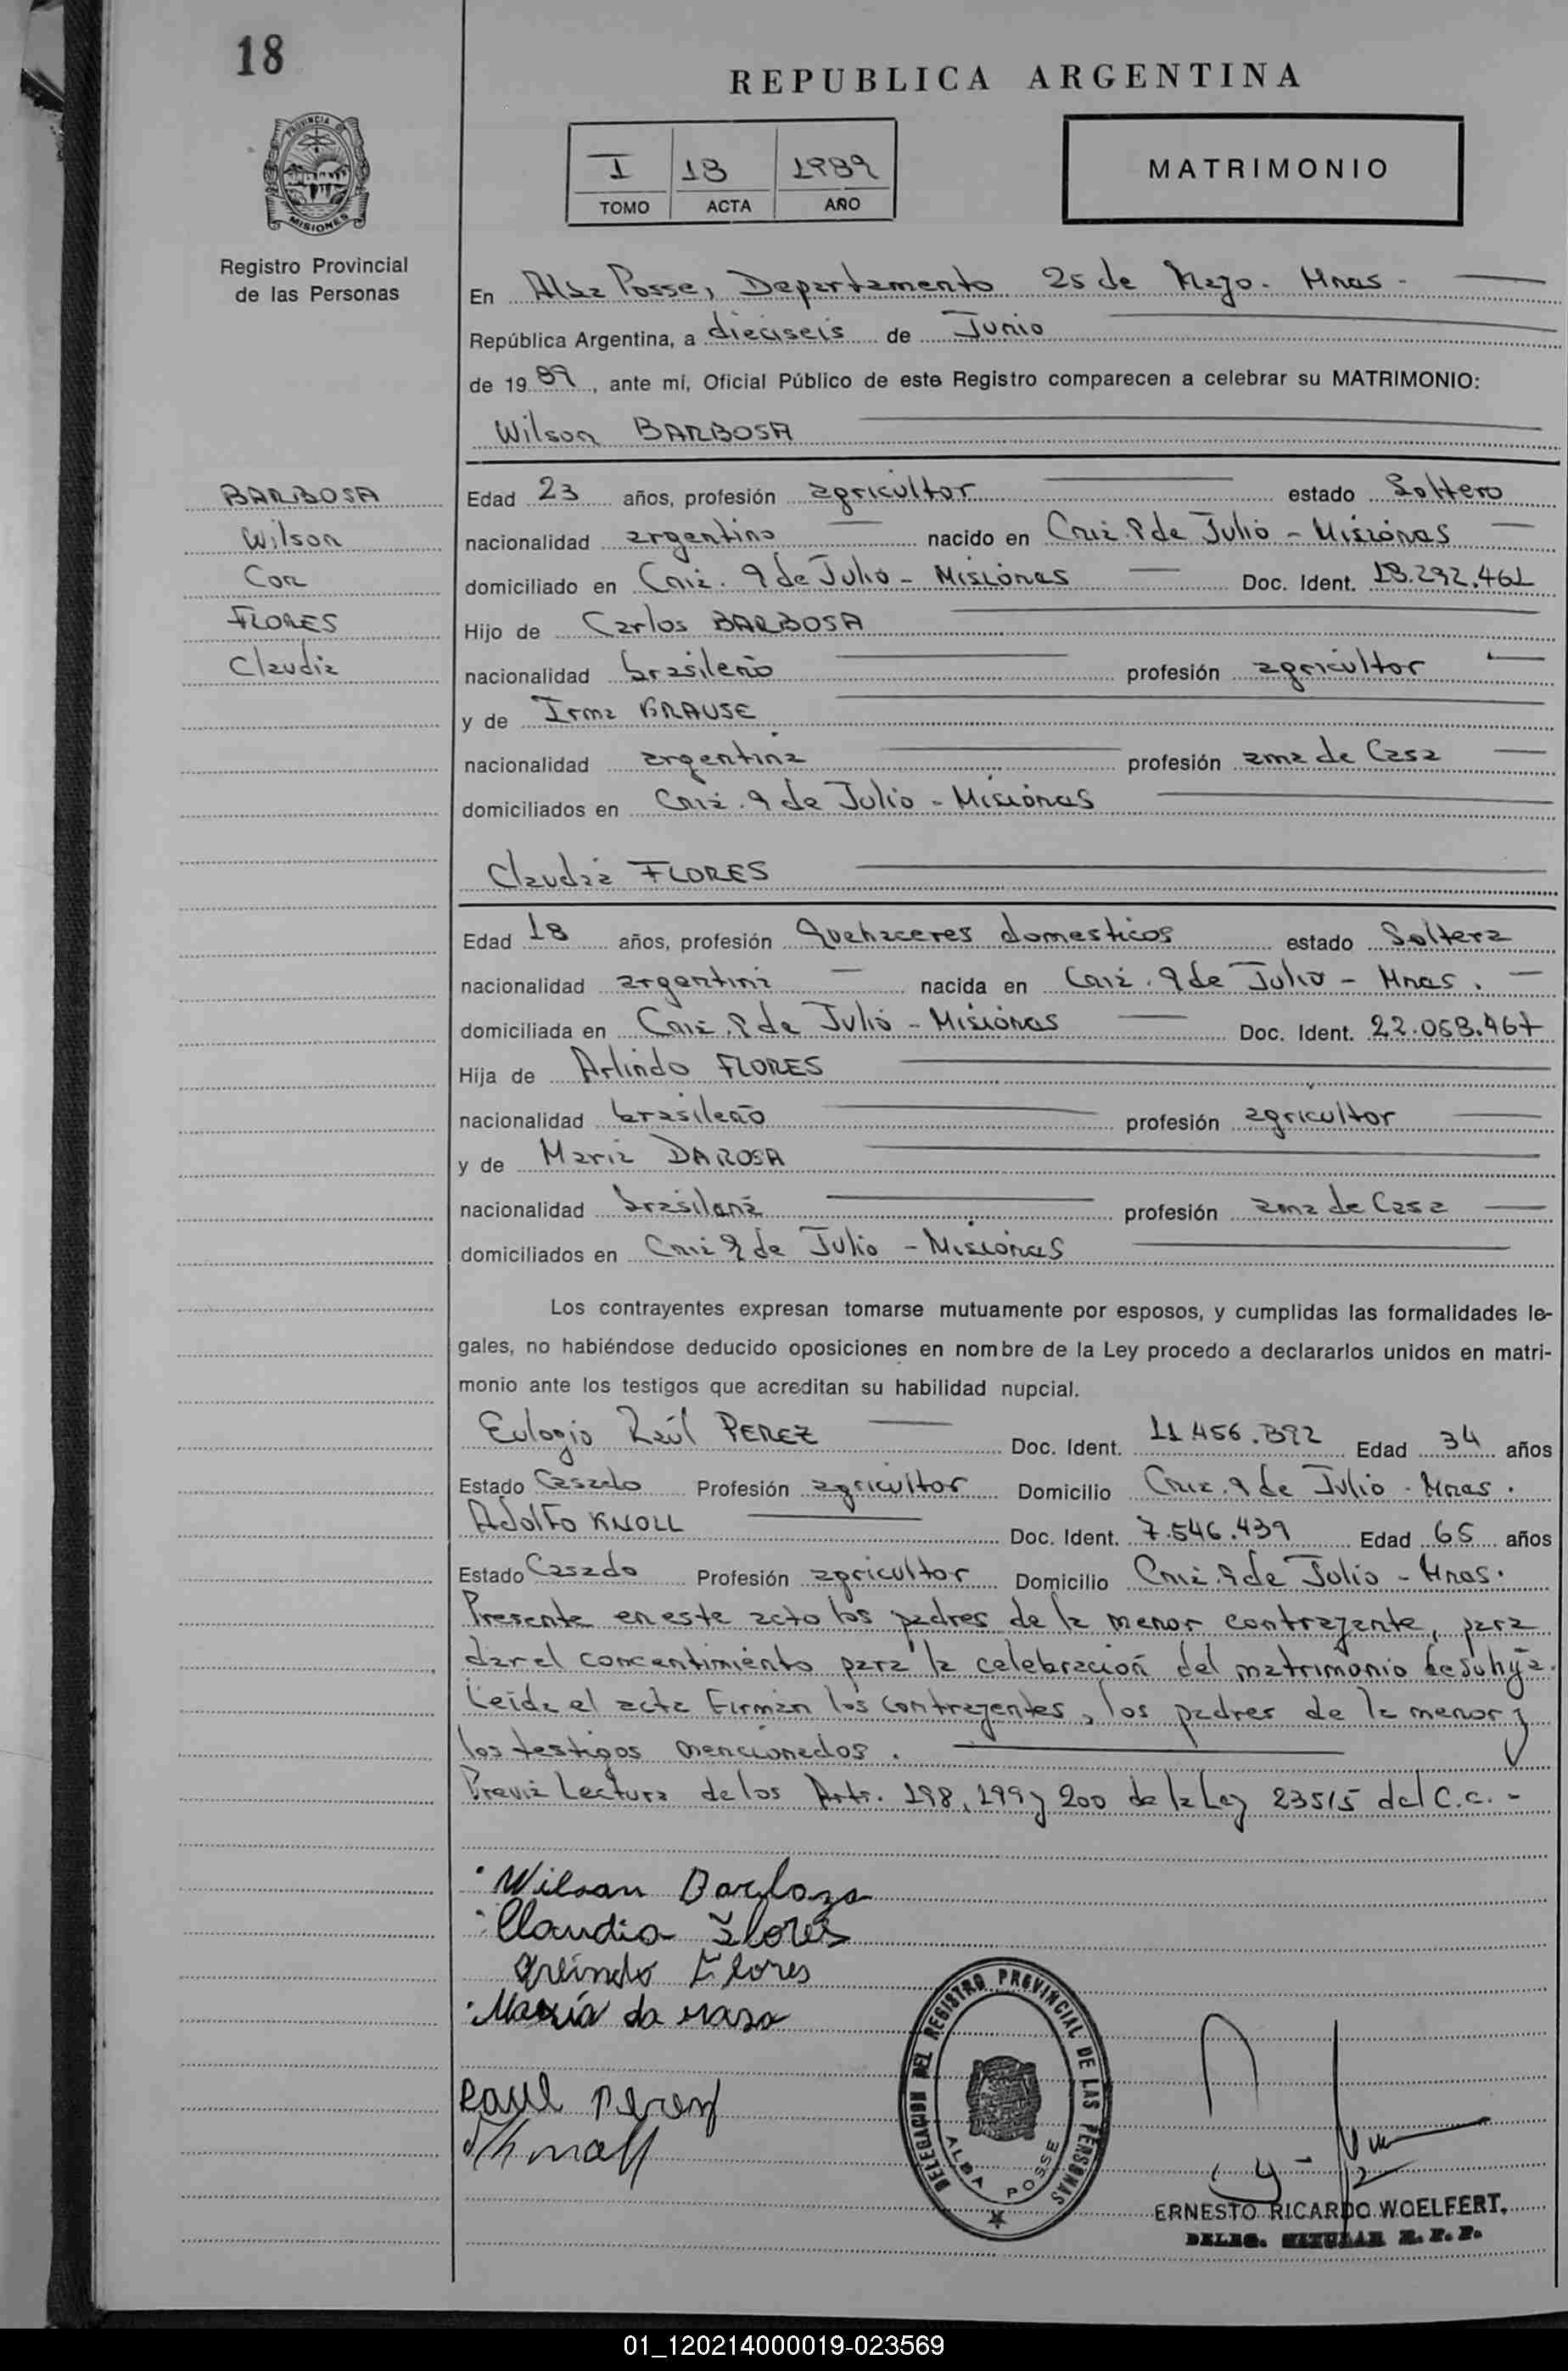 18
REPUBLICA ARGENTINA
I 18 1989
TOMO ACTA AÑO
MATRIMONIO
PROVINCIA DE MISIONES
Registro Provincial
de las Personas
En Alba Posse, Departamento 25 de Mayo. Mnes -
República Argentina, a dieciseis de Junio
de 1989, ante mí, Oficial Público de este Registro comparecen a celebrar su MATRIMONIO:
Wilson BARBOSA
BARBOSA
Wilson
Con
FLORES
Claudia
Edad 23 años, profesión agricultor estado Soltero
nacionalidad argentino nacido en Cnia. 9 de Julio - Misiones
domiciliado en Cnia. 9 de Julio - Misiones Doc. Ident. 18.292.461
Hijo de Carlos BARBOSA
nacionalidad brasileño profesión agricultor
y de Irma KRAUSE
nacionalidad argentina profesión ama de Casa
domiciliados en Cnia. 9 de Julio - Misiones
Claudia FLORES
Edad 18 años, profesión Quehaceres domesticos estado Soltera
nacionalidad argentina nacida en Cnia. 9 de Julio - Mnes.
domiciliada en Cnia. 9 de Julio - Misiones Doc. Ident. 22.058.467
Hija de Arlindo FLORES
nacionalidad brasileño profesión agricultor
y de Maria DAROSA
nacionalidad brasilena profesión ama de Casa
domiciliados en Cnia 9 de Julio - Misiones
Los contrayentes expresan tomarse mutuamente por esposos, y cumplidas las formalidades le-
gales, no habiéndose deducido oposiciones en nombre de la Ley procedo a declararlos unidos en matri-
monio ante los testigos que acreditan su habilidad nupcial.
Eulogio Raúl PEREZ Doc. Ident. 11.456.392 Edad 34 años
Estado Casado Profesión agricultor Domicilio Cnia. 9 de Julio - Mnes.
Adolfo KNOLL Doc. Ident. 7.546.439 Edad 65 años
Estado Casado Profesión agricultor Domicilio Cnia. 9 de Julio - Mnes.
Presente en este acto los padres de la menor contrayente, para
dar el concentimiento para la celebración del matrimonio de su hija.
Leida el acta Firman los contrayentes, los padres de la menor y
los testigos mencionados.
Previa Lectura de los Arts. 198, 199 y 200 de la Ley 23515 del C.c. -
Wilson Barboza
Claudia Flores
Arlindo Flores
María da rasa
Raul Perez
DELEGACION DEL REGISTRO PROVINCIAL DE LAS PERSONAS
ALBA POSSE
ERNESTO RICARDO WOELFERT.
DELEG. TITULAR R. P. P.
01_120214000019-023569